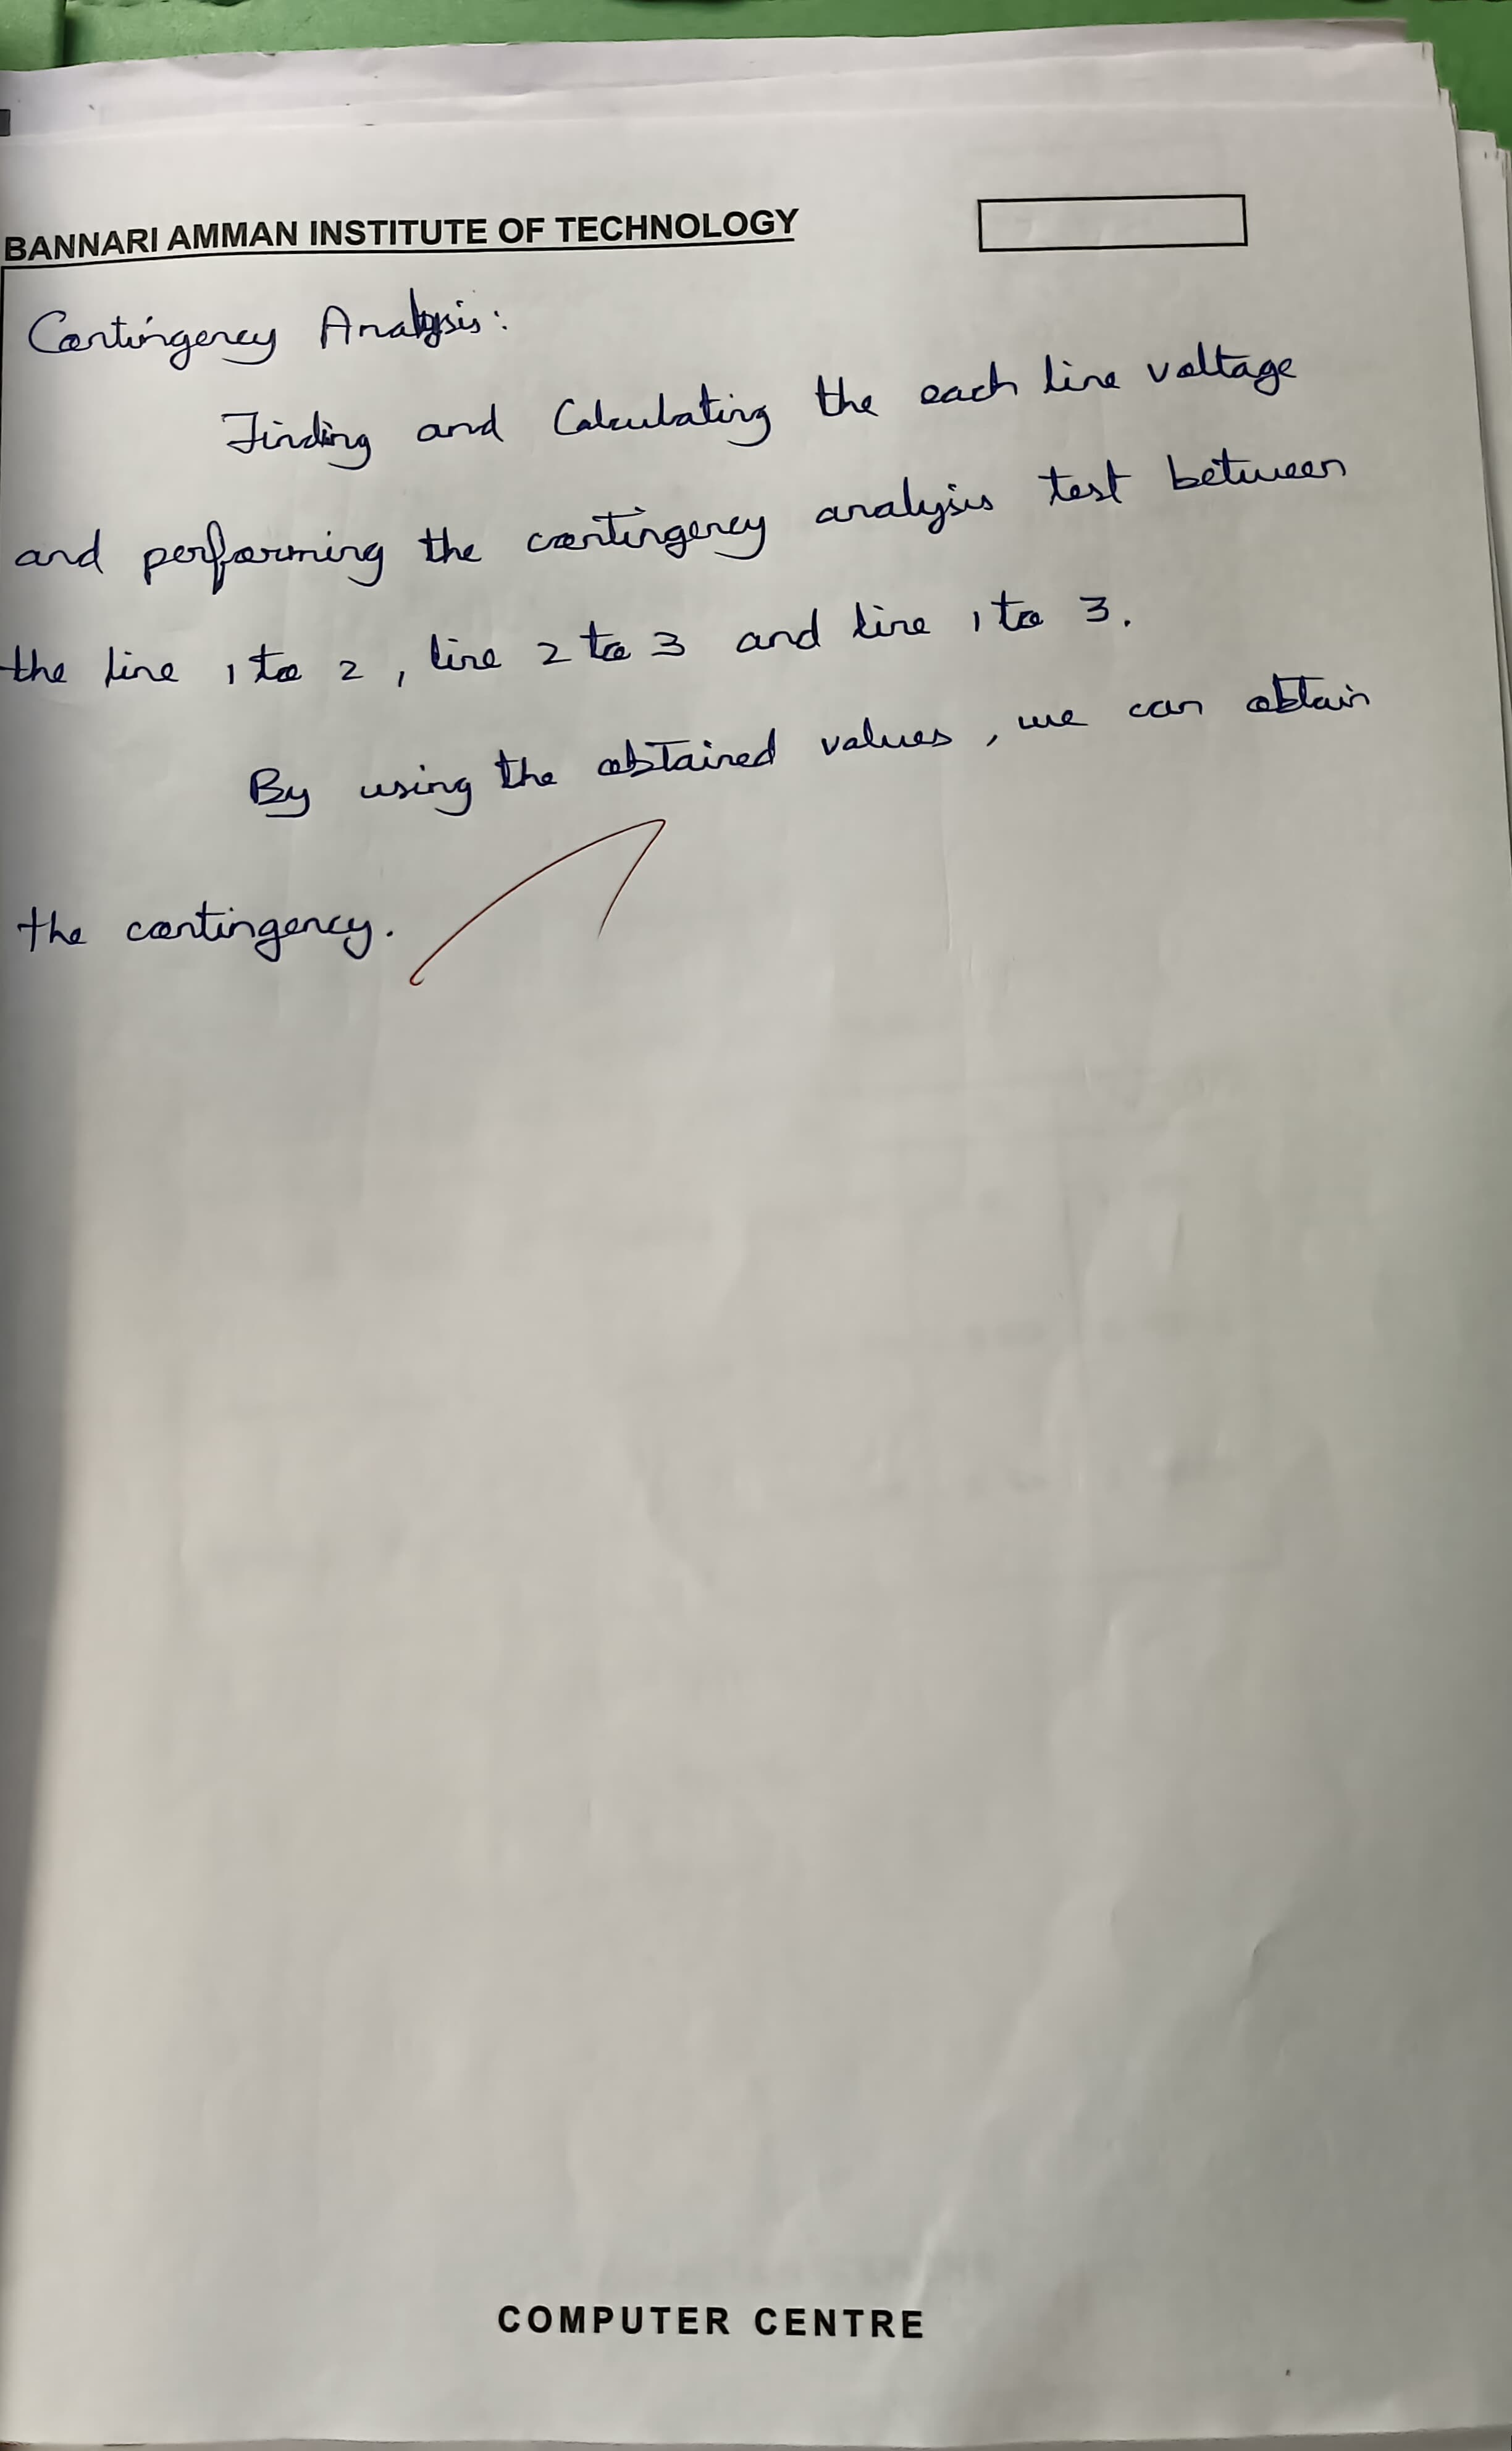 BANNARI AMMAN INSTITUTE OF TECHNOLOGY
Contingency Analysis:
Finding and Calculating the each line voltage
and performing the contingency analysis test between
the line 1 to 2, line 2 to 3 and line 1 to 3.
By using the obtained values, we can obtain
the contingency.
COMPUTER CENTRE